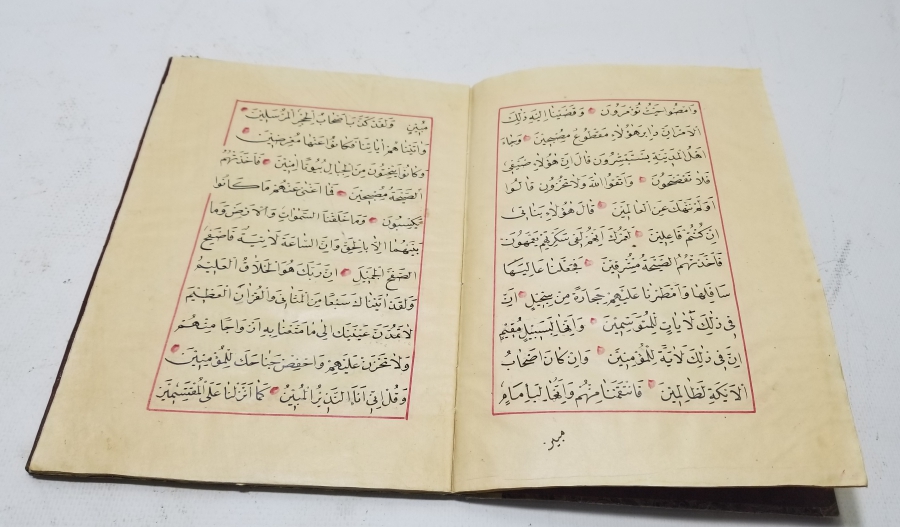 وَامْضُوا حَيْثُ تُؤْمَرُونَ وَقَضَيْنَا اِلَيْهِ ذٰلِكَ
الْاَمْرَ اَنَّ دَابِرَ هٰؤُلَاءِ مَقْطُوعٌ مُصْبِحِينَ وَجَاءَ
اَهْلُ الْمَدِينَةِ يَسْتَبْشِرُونَ قَالَ اِنَّ هٰؤُلَاءِ ضَيْفِي
فَلَا تَفْضَحُونِ وَاتَّقُوا اللهَ وَلَا تُخْزُونِ قَالُوا
اَوَلَمْ نَنْهَكَ عَنِ الْعَالَمِينَ قَالَ هٰؤُلَاءِ بَنَاتِي
اِنْ كُنْتُمْ فَاعِلِينَ لَعَمْرُكَ اِنَّهُمْ لَفِي سَكْرَتِهِمْ يَعْمَهُونَ
فَاَخَذَتْهُمُ الصَّيْحَةُ مُشْرِقِينَ فَجَعَلْنَا عَالِيَهَا
سَافِلَهَا وَاَمْطَرْنَا عَلَيْهِمْ حِجَارَةً مِنْ سِجِّيلٍ اِنَّ
فِي ذٰلِكَ لَاٰيَاتٍ لِلْمُتَوَسِّمِينَ وَاِنَّهَا لَبِسَبِيلٍ مُقِيمٍ
اِنَّ فِي ذٰلِكَ لَاٰيَةً لِلْمُؤْمِنِينَ وَاِنْ كَانَ اَصْحَابُ
الْاَيْكَةِ لَظَالِمِينَ فَانْتَقَمْنَا مِنْهُمْ وَاِنَّهُمَا لَبِاِمَامٍ
مبين
مُبِينٍ وَلَقَدْ كَذَّبَ اَصْحَابُ الْحِجْرِ الْمُرْسَلِينَ
وَاٰتَيْنَاهُمْ اٰيَاتِنَا فَكَانُوا عَنْهَا مُعْرِضِينَ
وَكَانُوا يَنْحِتُونَ مِنَ الْجِبَالِ بُيُوتًا اٰمِنِينَ فَاَخَذَتْهُمُ
الصَّيْحَةُ مُصْبِحِينَ فَمَا اَغْنٰى عَنْهُمْ مَا كَانُوا
يَكْسِبُونَ وَمَا خَلَقْنَا السَّمٰوَاتِ وَالْاَرْضَ وَمَا
بَيْنَهُمَا اِلَّا بِالْحَقِّ وَاِنَّ السَّاعَةَ لَاٰتِيَةٌ فَاصْفَحِ
الصَّفْحَ الْجَمِيلَ اِنَّ رَبَّكَ هُوَ الْخَلَّاقُ الْعَلِيمُ
وَلَقَدْ اٰتَيْنَاكَ سَبْعًا مِنَ الْمَثَانِي وَالْقُرْاٰنَ الْعَظِيمَ
لَا تَمُدَّنَّ عَيْنَيْكَ اِلٰى مَا مَتَّعْنَا بِهِ اَزْوَاجًا مِنْهُمْ
وَلَا تَحْزَنْ عَلَيْهِمْ وَاخْفِضْ جَنَاحَكَ لِلْمُؤْمِنِينَ
وَقُلْ اِنِّي اَنَا النَّذِيرُ الْمُبِينُ كَمَا اَنْزَلْنَا عَلَى الْمُقْتَسِمِينَ